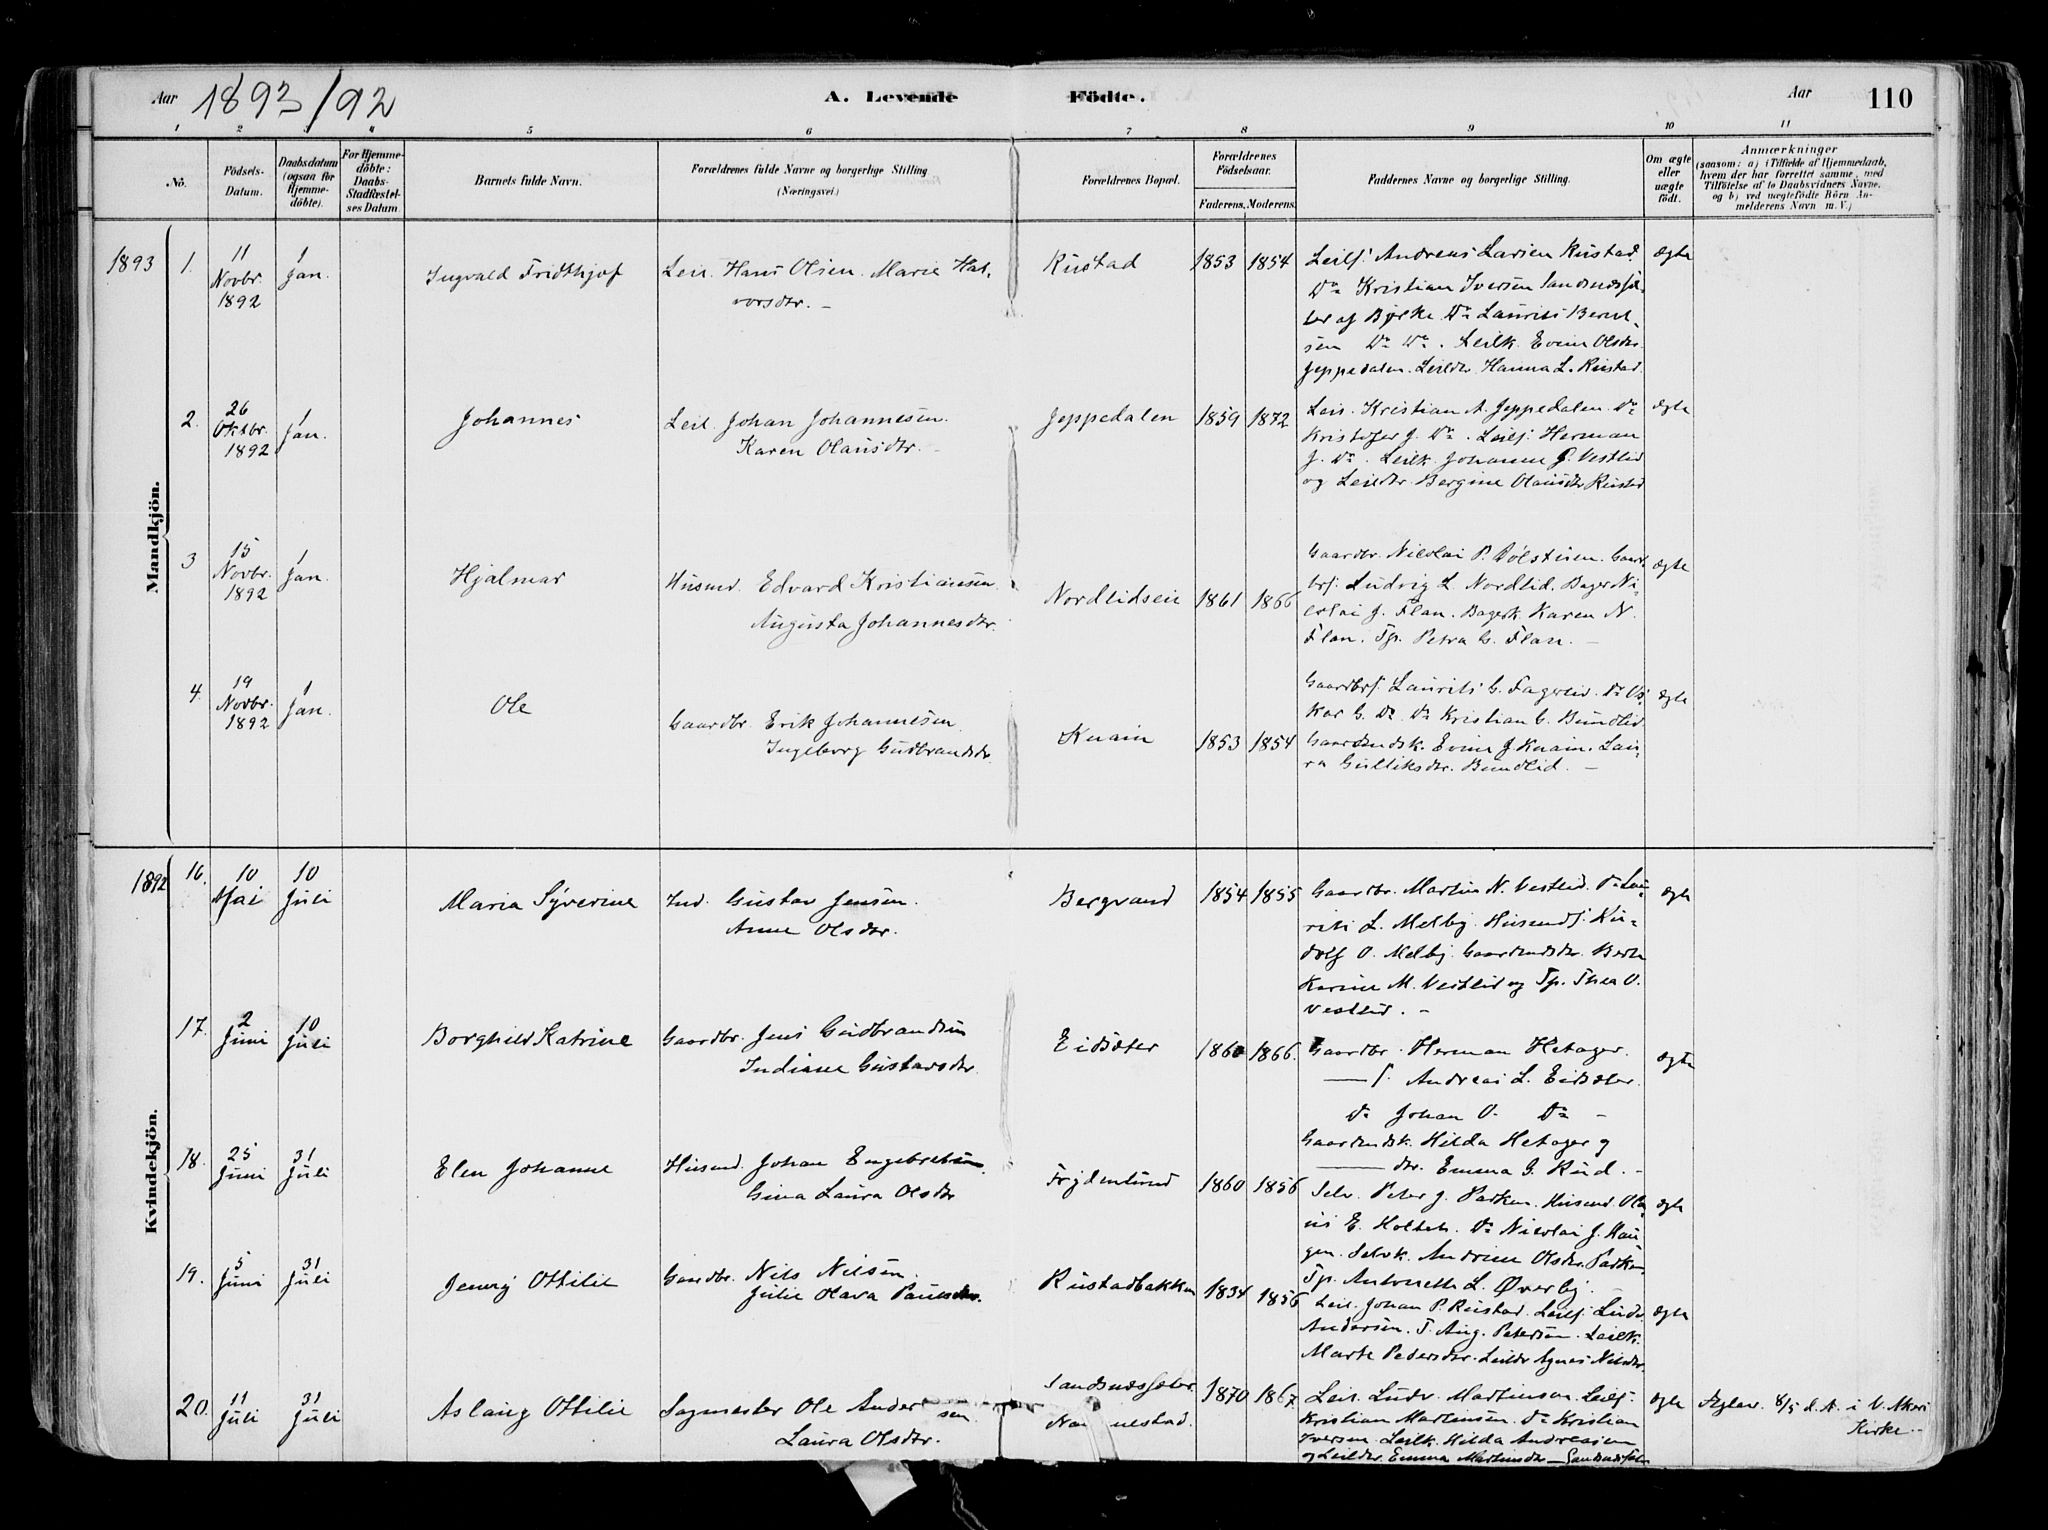 Aar 1893/92 A. Levende Födte. Aar 110
1 2 3 4 5 6 7 8 9 10 11
No.
Födsels-Datum.
Daabsdatum (ogsaa for Hjemme-döbte).
For Hjemme-döbte: Daabs-Stadfæstel-ses Datum
Barnets fulde Navn.
Forældrenes fulde Navne og borgerlige Stilling (Næringsvei)
Forældrenes Bopæl.
Forældrenes Födselsaar.
Faderens. Moderens.
Faddernes Navne og borgerlige Stilling.
Om ægte eller uægte födt.
Anmærkninger
(saasom: a) i Tilfælde af Hjemmedaab,
hvem der har forrettet samme, med
Tilföielse af to Daabsvidners Navne,
og b) ved uægtefödte Börn An-
melderens Navn m. V.)
Mandkjön.
1893 1. 11 Novbr. 1892 1 Jan. Ingvald Fridthjof
Leil. Hans Olsen. Marie Hal-
vorsdtr. –
Rustad 1853 1854
Leilf. Andreas Larsen Rustad.
Do Kristian Iversen Sandnessæ-
ter af Bjrke Do Laurits Bernt-
sen Do Do. Leilk. Evine Olsdtr.
Jeppedalen. Leildtr. Hanna L. Rustad.
Ægte
2. 26 Oktbr. 1892 1 Jan. Johannes
Leil. Johan Johannesen.
Karen Olausdtr. –
Jeppedalen 1859 1872
Leil. Kristian A. Jeppedalen. Do
Kristofer J. Do. Leilf. Herman
J. Do. Leilk. Johanne J. Vestlid
og Leildtr. Bergine Olausdtr Rustad
ægte
3 15 Novbr. 1892 1 Jan. Hjalmar
Husmd. Edvard Kristiansen.
Augusta Johannesdtr.
Nordlidseie 1861 1866
Gaardbr. Nicolai P. Dölstuen. Gaard-
brf. Ludvig L Nordlid. Bager Ni-
colai J. Flan. Bagerk. Karen N.
Flan. Tp. Petra G. Flan. –
ægte
4. 19 Novbr. 1892 1 Jan. Ole
Gaardbr. Erik Johannesen.
Ingeborg Gudbrandsdtr.
Knain 1853 1854
Gaardbrf. Laurits G. Fagerlid. Do Os-
kar G. Do. Do Kristian G. Bundlid.
Gaardmdsk. Evine J Knain. Lau-
ra Gulliksdtr. Bundlid. –
ægte
Kvindekjön.
1892 16. 10 Mai 10 Juli Maria Syverine
Ind. Gustav Jensen.
Anne Olsdtr.
Bergvand 1854 1855
Gaardbr. Martin N. Vestlid. Do Lau-
rits L. Melby. Husmdf. Ru-
dolf O. Melby. Gaardmdsdtr. Berte
Karine M. Vestlid og Tp. Thea O.
Vestlid. –
ægte
17. 2 Juni 10 Juli Borghild Katrine
Gaardbr. Jens Gudbrandsen
Indiane Gustavsdtr.
Eidsæter 1860 1866.
Gaardbr. Herman Hetager.
— f. Andreas L. Eidsæter.
Do Johan O. Do –
Gaardmdsk. Hilda Hetager og
— dtr. Emma G. Rud. –
ægte
18. 25 Juni 31 Juli Elen Johanne
Husmd. Johan Engebretsen.
Gina Laura Olsdtr
Frydenlund 1860 1856
Selv. Peter J. Parken. Husmd. Ola-
us E. Holteb. Do Nicolai J. Hau-
gen. Selvk. Andrine Olsdtr. Parken
Tp. Antonette L. Øverby.
ægte
19. 5 Juni 31 Juli Jenny Ottilie
Gaardbr. Nils Nilsen.
Julie Olava Paulsdtr.
Rustadbakken 1834 1856
Leil. Johan P. Rustad. Leilf. Ludv.
Andersen. T. Aug. Petersen. Leilk.
Marte Pedersdtr. Leildtr Agnes Nilsdtr.
ægte
20. 11 Juli 31 Juli Aslaug Ottilie
Sagmester Ole Andersen
Laura Olsdtr.
Sandnessæter.
Nannestad.
1870 1867.
Leil. Ludv. Martinsen. Leilf.
Kristian Martinsen. Do Kristian
Iversen. Leilk. Hilda Andreasen
og Leildtr. Emma Martinsdtr – Sandnessæter
ægte
8/5 d. A. i V. Akers
Kirke. –